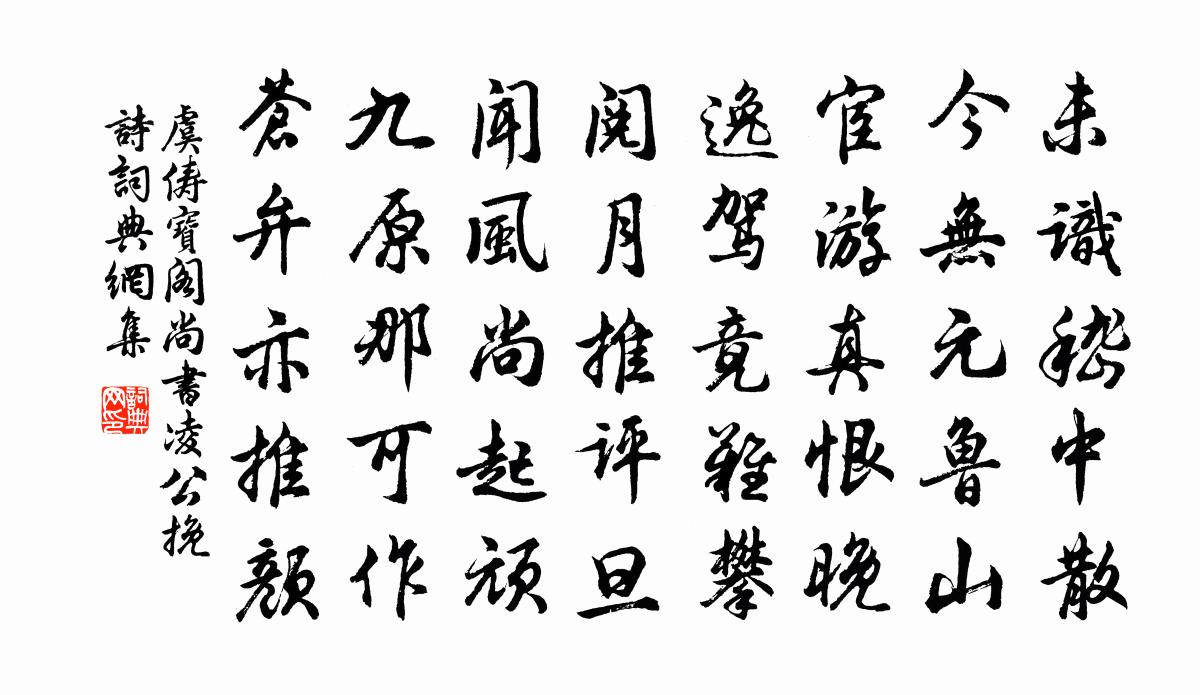 未識嵇中散
今無元魯山
宦游真恨晚
逸駕竟難攀
閱月推評旦
聞風尚起頑
九原那可作
蒼弁亦推顏
虞儔寶閣尚書凌公挽
詩詞典網集
詞典网印